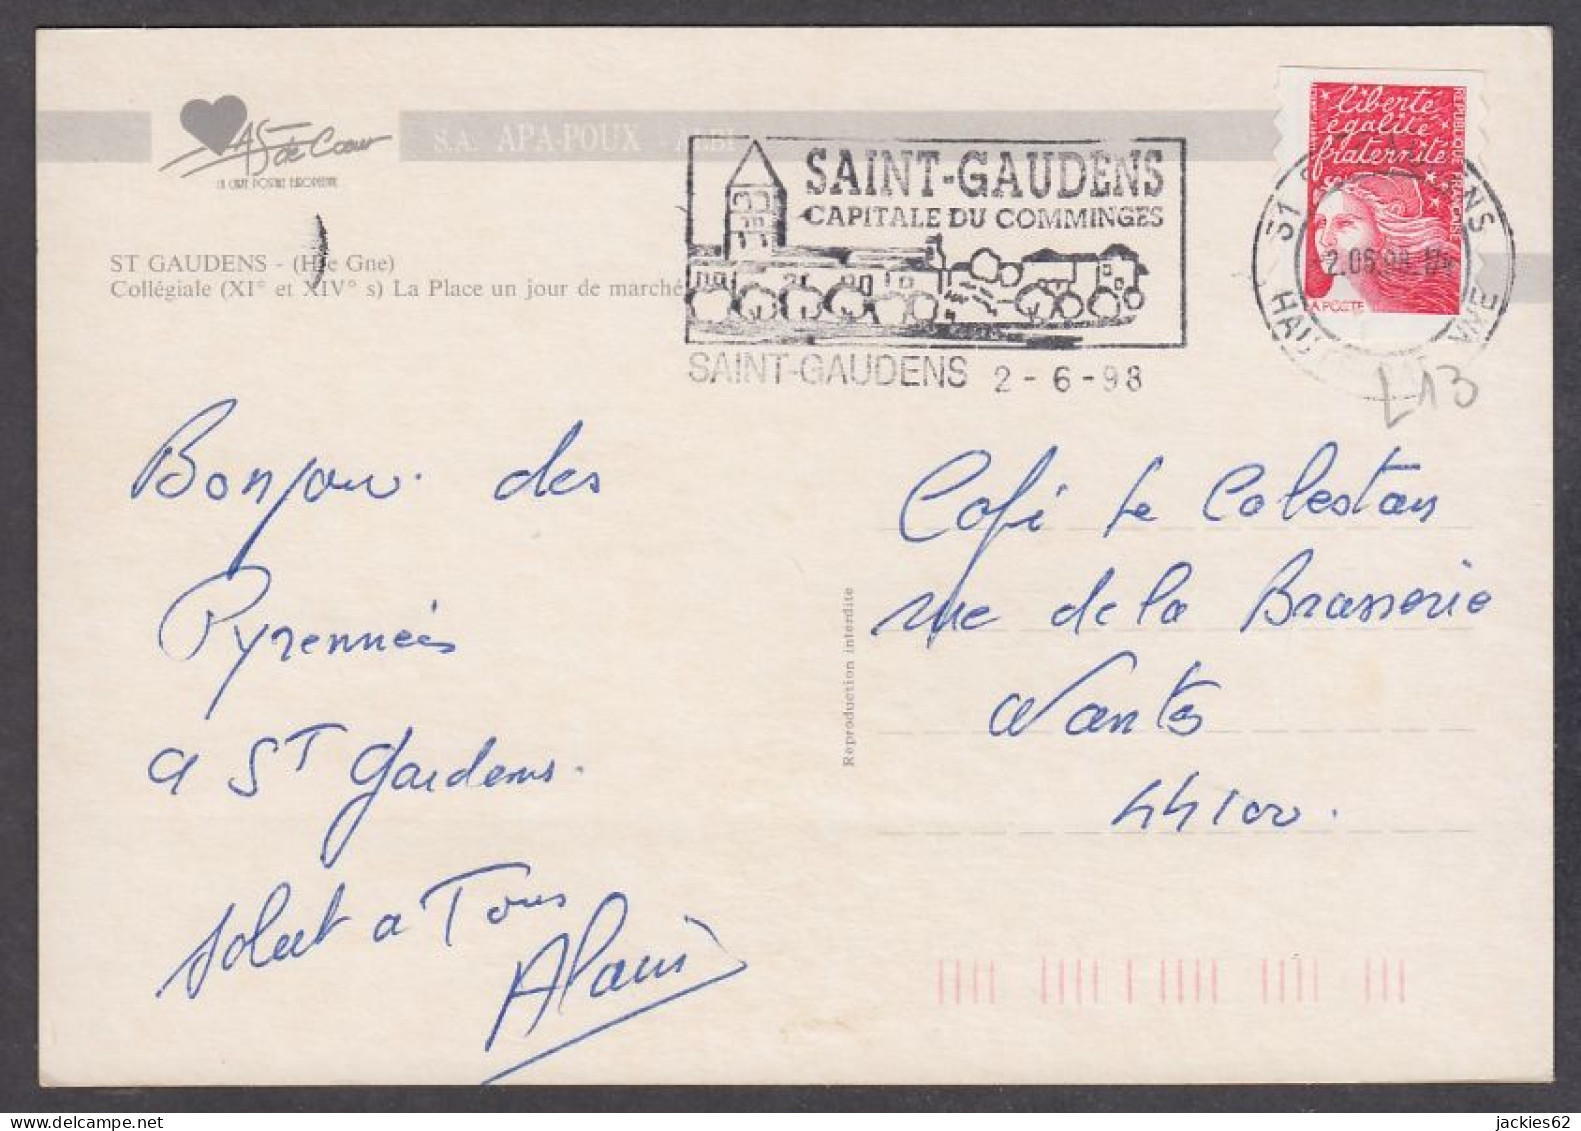 AS de Cœur
LA CARTE POSTALE EUROPEENNE
S.A. APA-POUX - ALBI
ST GAUDENS - (Hte Gne)
Collégiale (XI° et XIV° s) La Place un jour de marché
SAINT-GAUDENS
CAPITALE DU COMMINGES
SAINT-GAUDENS 2-6-98
liberté
égalité
fraternité
REPUBLIQUE FRANÇAISE
LA POSTE
L13
Bonjour des
Pyrennées
a ST Gaudens.
Salut a Tous
Alain
Reproduction interdite
Café Le Calestan
rue de la Brasserie
Nantes
44100.
jackies62